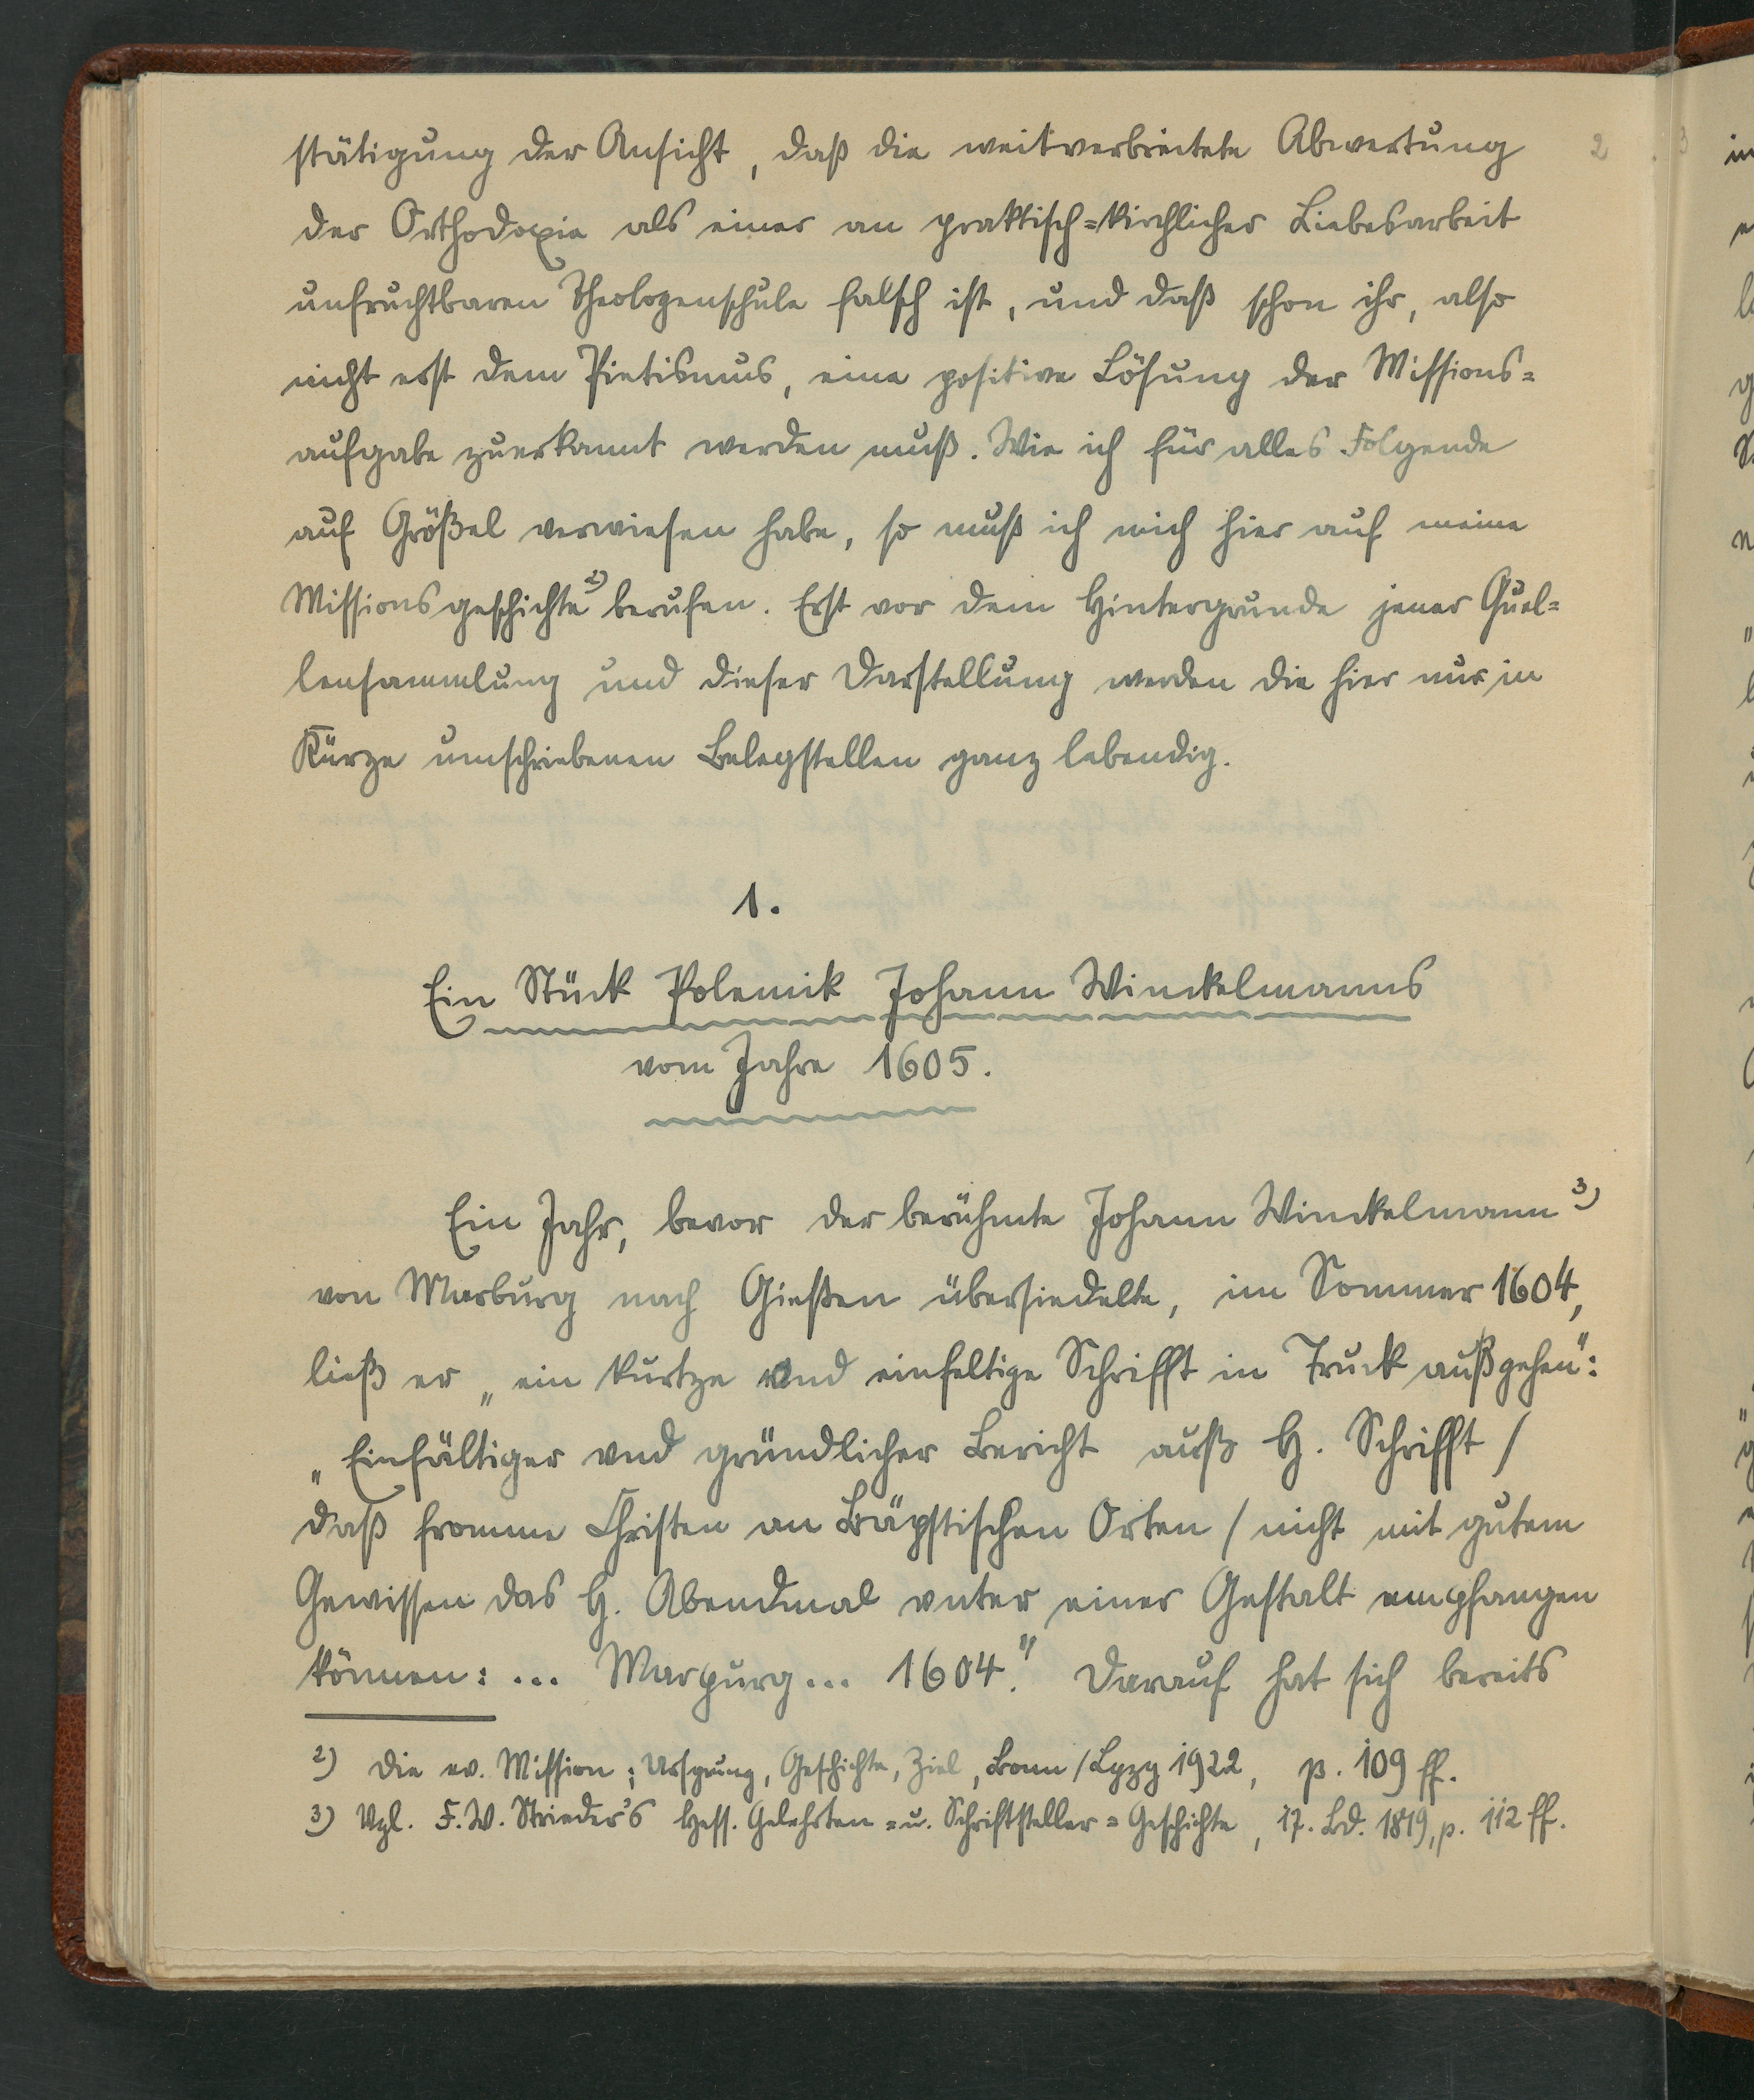 stätigung der Ansicht, daß die weitverbreitete Abwertung 2
der Orthodoxie als einer an praktisch=kirchlicher Liebesarbeit
unfruchtbaren Theologenschule falsch ist, und daß schon ihr, also
nicht erst dem Pietismus, eine positive Lösung der Missions=
aufgabe zuerkannt werden muß. Wie ich für alles Folgende
auf Größel verwiesen habe, so muß ich mich hier auf meine
Missionsgeschichte 2) berufen. Erst vor dem Hintergrunde jener Quel=
lensammlung und dieser Darstellung werden die hier nur in
Kürze umschriebenen Belegstellen ganz lebendig.
1.
Ein Stück Polemik Johann Winckelmanns
vom Jahre 1605.
Ein Jahr, bevor der berühmte Johann Winckelmann 3)
von Marburg nach Gießen übersiedelte, im Sommer 1604,
ließ er „ein kurtze vnd einfeltige Schrifft in Truck außgehen":
„Einfältiger vnd gründlicher Bericht auß H. Schrifft /
daß fromme Christen an Bäpstischen Orten / nicht mit gutem
Gewissen das H. Abendmal vnter einer Gestalt empfangen
können: ... Marpurg ... 1604." Darauf hat sich bereits
2) Die ev. Mission; Ursprung, Geschichte, Ziel, Bonn / Lpzg 1922, p. 109 ff.
3) Vgl. F. W. Strieder's Hess. Gelehrten = u. Schriftsteller = Geschichte, 17. Bd. 1819, p. 112 ff.